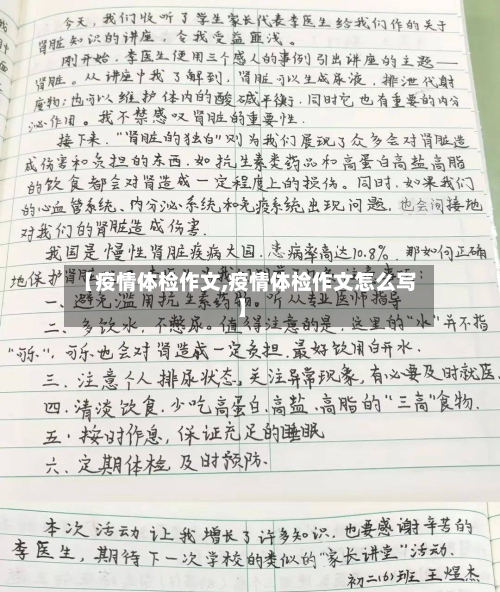 今天,我们收听了学生家长代表李医生给我们作的关于
肾脏知识的讲座,令我受益匪浅。
刚开始,李医生便用三个感人的事例引出讲座的主题——
肾脏。从讲座中我了解到,肾脏可以生成尿液,排泄代射
废物;也可以维护体内的酸碱平衡,同时它也有重要的内分
泌作用。我不禁感叹肾脏的重要性。
接下来,"肾脏的独白"则为我们展现了众多会对肾脏造
成伤害和负担的东西,如抗生素类药品和高蛋白高盐高脂
的饮食都会对肾造成一定程度上的损伤。同时,如果我们
的心血管系统、内分泌系统和免疫系统出现问题,也会间接地
对我们的肾脏造成伤害。
我国是慢性肾脏疾病大国,患病率高达10.8%,那如何正确
地保护肾脏
【疫情体检作文,疫情体检作文怎么写
】
一、避免滥用抗生素药物。听从专业医师指导
二、多饮水,不憋尿。值得注意的是,这里的"水"并不指
"可乐",可乐也会对肾造成一定负担,最好饮用白开水.
三、注意个人排尿状态,关注异常现象,有必要及时就医.
四.清淡饮食.少吃高蛋白.高盐.高脂的"三高"食物.
五.按时作息,保证充足的睡眠
六、定期体检,及时预防.
本次活动让我增长了许多知识,也要感谢辛苦的
李医生,期待下一次学校的类似的"家长讲堂"活动.
初二(6)班 王煜杰